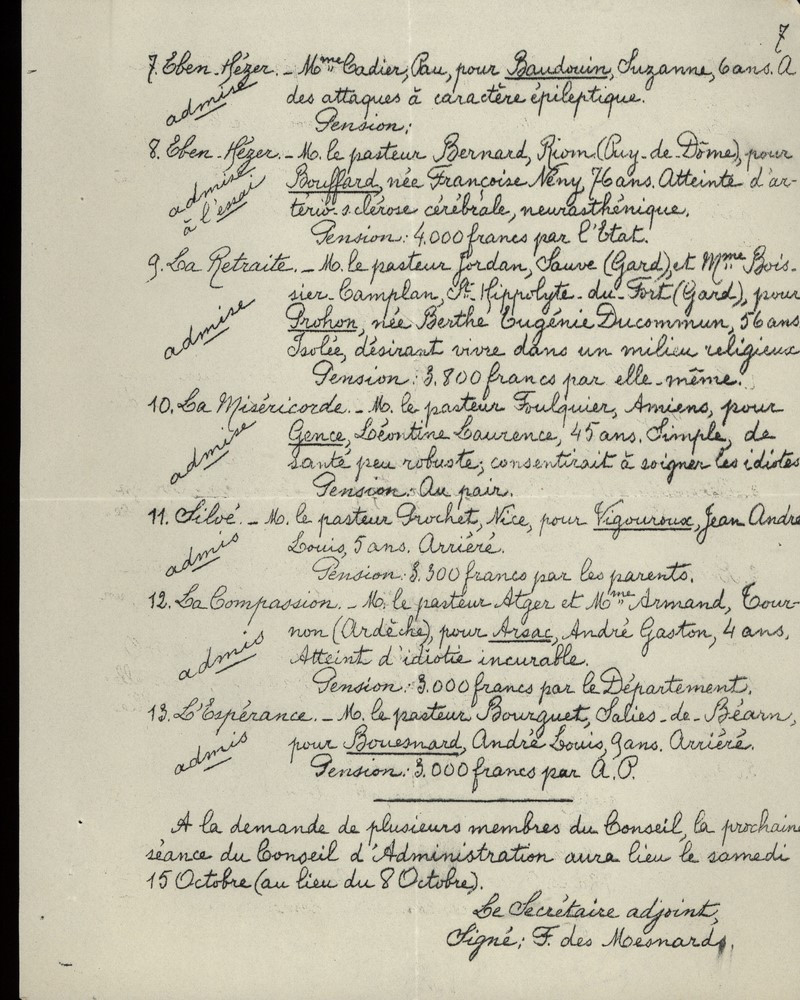 7
7. Eben-Hézer. - Mme Cadier, Pau, pour Baudouin, Suzanne, 6 ans. A
admise
des attaques à caractère épileptique.
Pension:
8. Eben-Hézer. - M. le pasteur Bernard, Riom (Puy-de-Dôme), pour
admise
à l'essai
Bouffard, née Françoise Nény, 76 ans. Atteinte d'ar-
tério-sclérose cérébrale, neurasthénique.
Pension: 4.000 francs par l'Etat.
9. La Retraite. - M. le pasteur Jordan, Sauve (Gard), et Mme Bois-
sier-Camplan, St-Hippolyte-du-Fort (Gard), pour
admise
Prohon, née Berthe Eugénie Ducommun, 56 ans
Isolée, désirant vivre dans un milieu religieux
Pension: 3.800 francs par elle-même.
10. La Miséricorde. - M. le pasteur Foulquier, Amiens, pour
admise
Gence, Léontine Laurence, 45 ans. Simple, de
santé peu robuste; consentirait à soigner les idiotes
Pension: Au pair.
11. Siloé. - M. le pasteur Prochet, Nice, pour Vigouroux, Jean André
admis
Louis, 5 ans. Arriéré.
Pension: 3.300 francs par les parents.
12. La Compassion. - M. le pasteur Atger et Mme Armand, Tour-
non (Ardèche), pour Arsac, André Gaston, 4 ans.
admis
Atteint d'idiotie incurable.
Pension: 3.000 francs par le Département.
13. L'Espérance. - M. le pasteur Bourguet, Salies-de-Béarn,
admis
pour Bouesnard, André Louis, 9 ans. Arriéré.
Pension: 3.000 francs par A.P.
A la demande de plusieurs membres du Conseil, la prochaine
séance du Conseil d'Administration aura lieu le samedi
15 Octobre (au lieu du 8 Octobre).
Le Secrétaire adjoint,
Signé: F. des Mesnards.